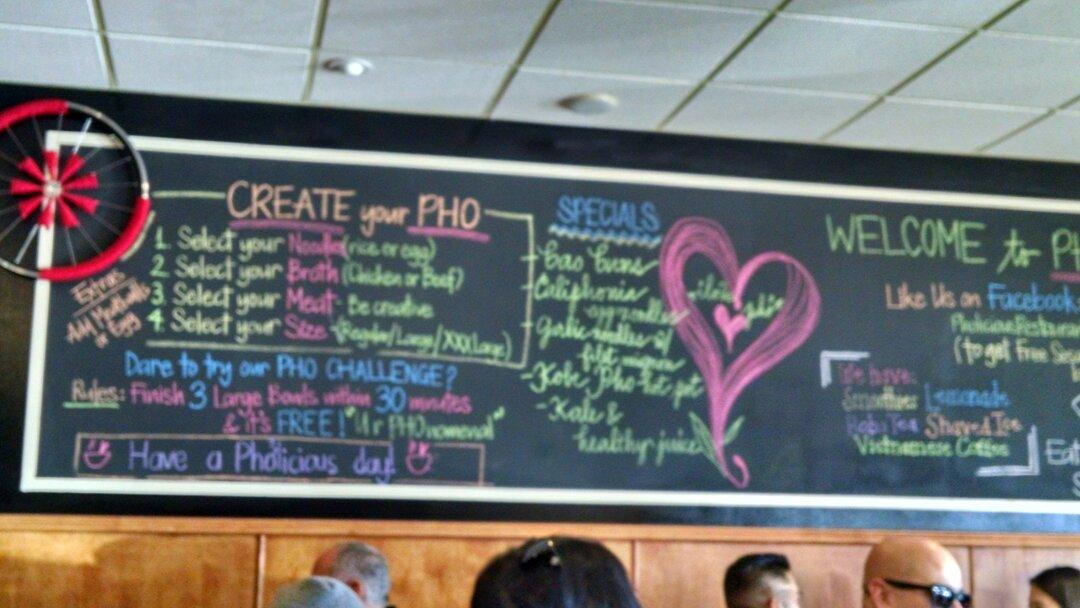 CREATE your PHO
1. Select your Noodle (rice or egg)
2. Select your Broth (Chicken or Beef)
3. Select your Meat - Be creative
4. Select your Size - (Regular/Large/XXLarge)
Extras
- Add Meatballs
or Egg
Dare to try our PHO CHALLENGE?
Rules: Finish 3 Large Bowls within 30 minutes
& it's FREE! "U r PHOnomenal"
Have a Pholicious day!
SPECIALS
- bao buns
- Caliphonia
egg noodles
- garlic noodles w/
filet mignon
- Kobe Pho-hot pot
- Kale &
healthy juice
WELCOME to
Like Us on Facebook
(to get Free
We have:
Smoothies Lemonade
Boba Tea Shaved Ice
Vietnamese Coffee